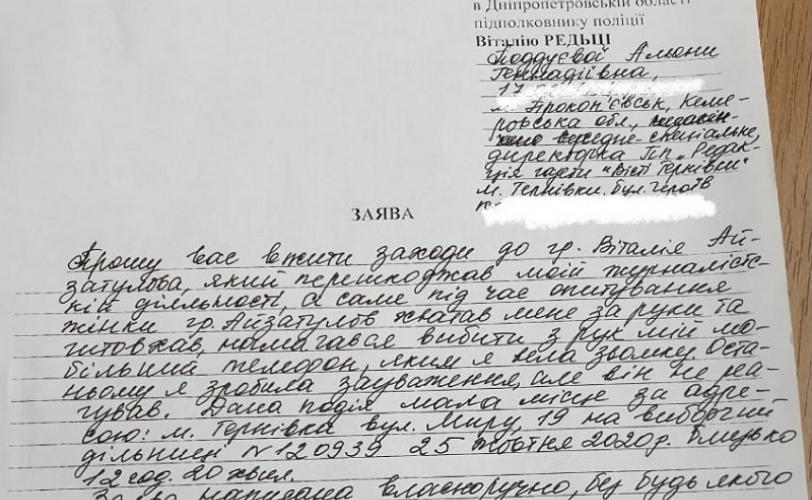 в Дніпропетровській області
підполковнику поліції
Віталію РЕДЬЦІ
Поддуєвої Альони
Геннадіївна,
17
м. Прокоп'євськ, Кеме-
ровська обл.,
спеціальне,
директорка ПП „Редак-
ція газети "Вісті Тернівки"
м. Тернівки. бул. Героїв
ЗАЯВА
Прошу вас вжити заходи до гр. Віталія Ай-
затулова, який перешкоджав моїй журналістс-
кій діяльності, а саме під час опитування
жінки гр. Айзатулов хватав мене за руки та
штовхав, намагався вибити з рук мій мо-
більний телефон, яким я вела зйомку. Оста-
ньому я зробила зауваження, але він не реа-
гував. Дана подія мала місце за адре-
сою: м. Тернівка вул. Миру, 19 на виборчій
дільниці №120939 25 жовтня 2020р. близько
12 год. 20 хвил.
написана власноручно, без будь якого